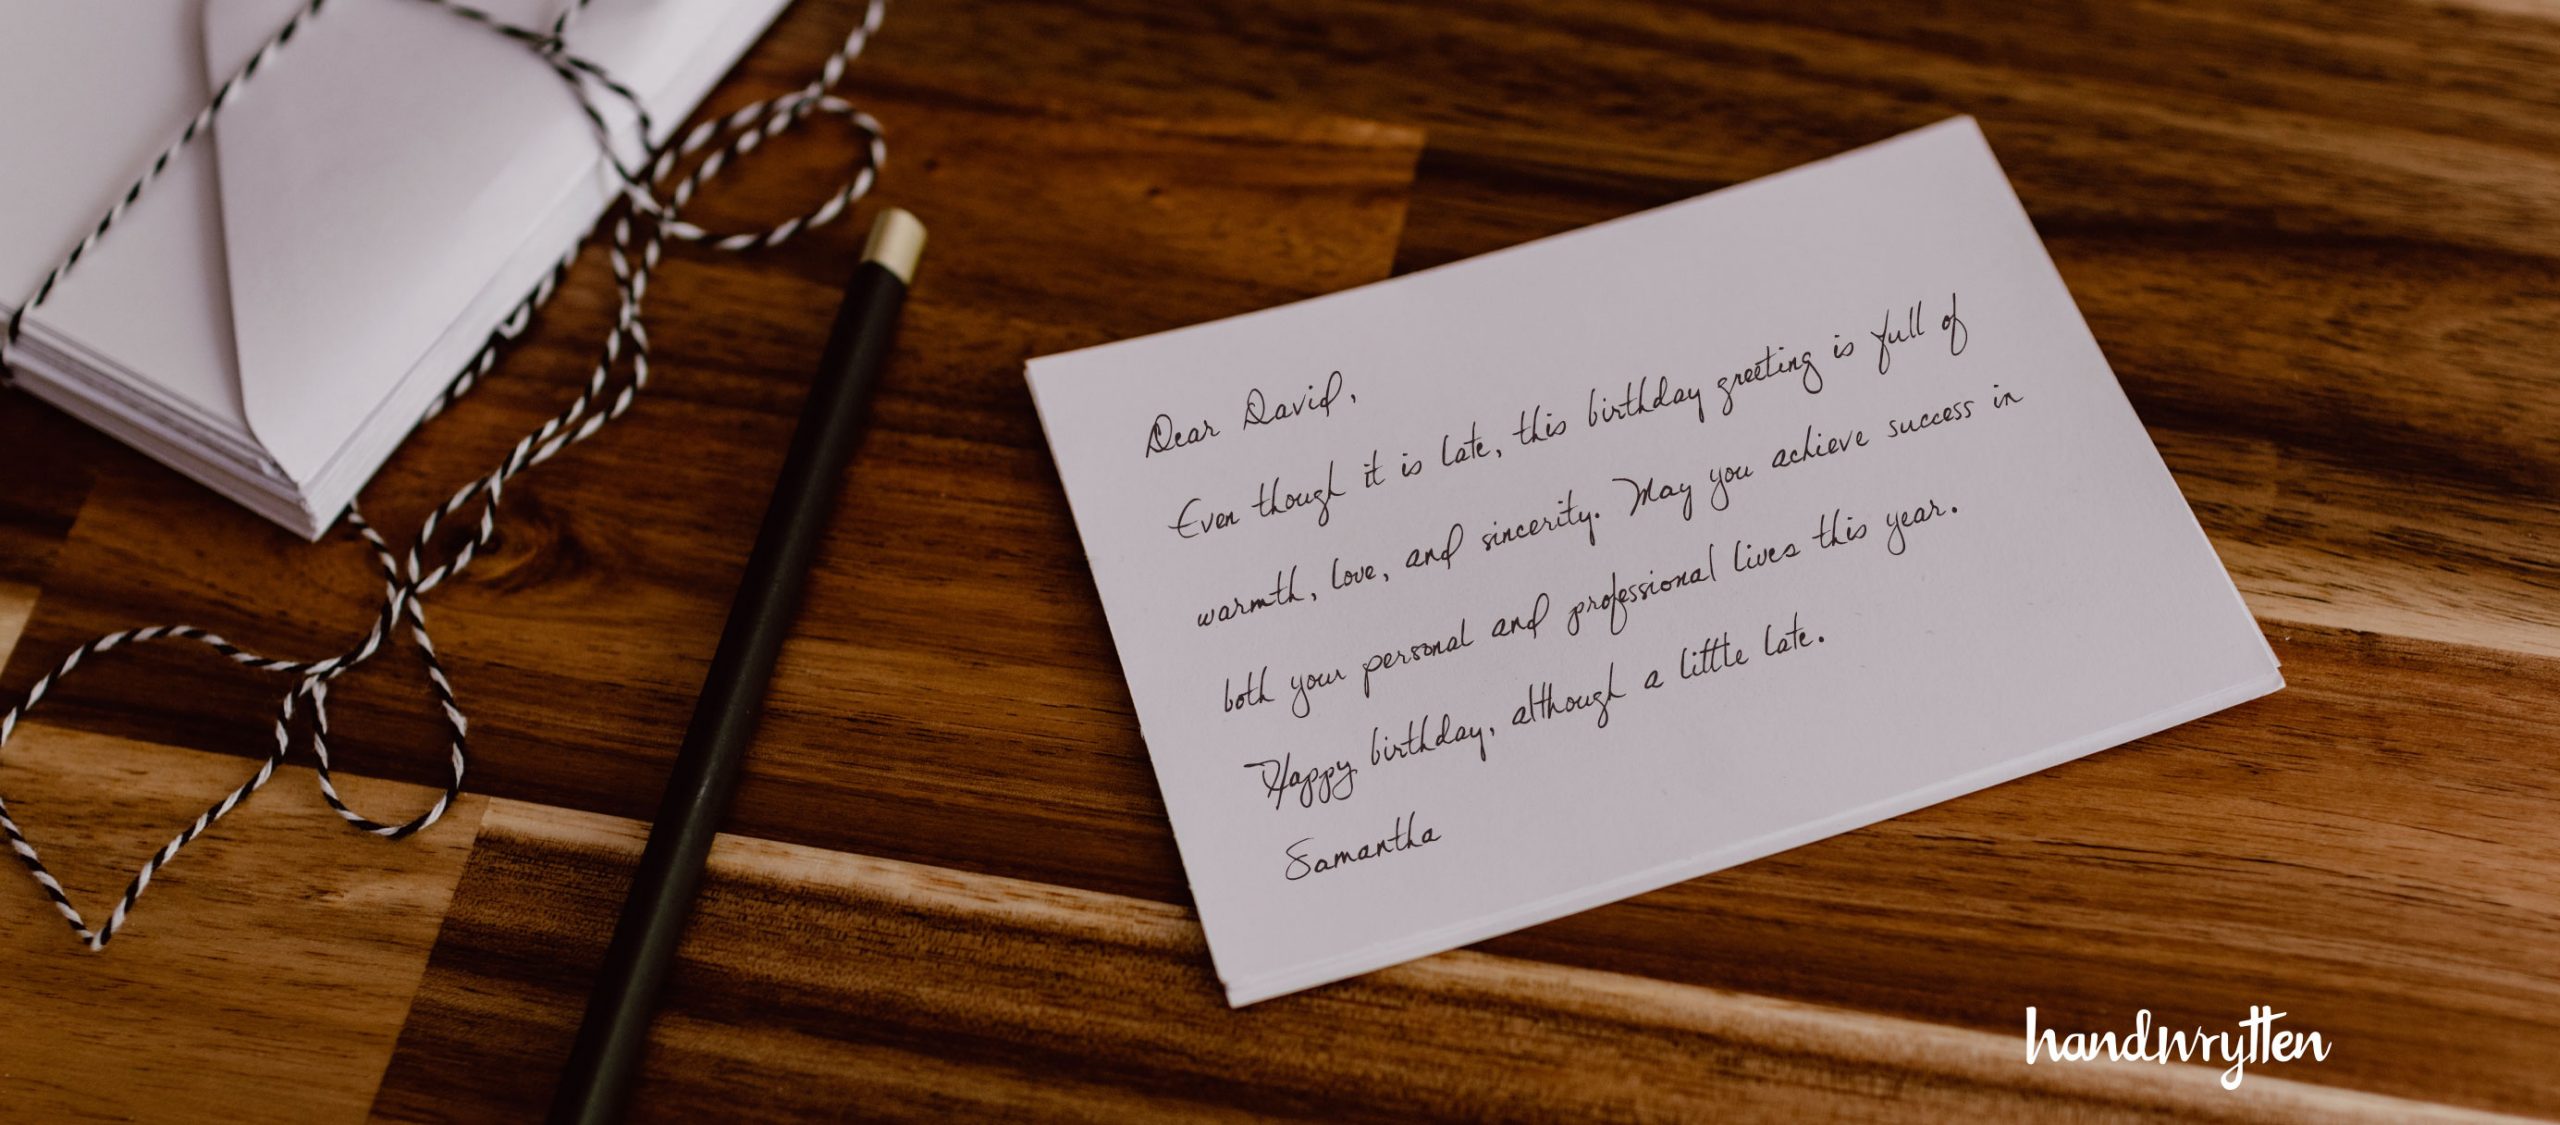 Dear David,
Even though it is late, this birthday greeting is full of
warmth, love, and sincerity. May you achieve success in
both your personal and professional lives this year.
Happy birthday, although a little late.
Samantha
handwrytten